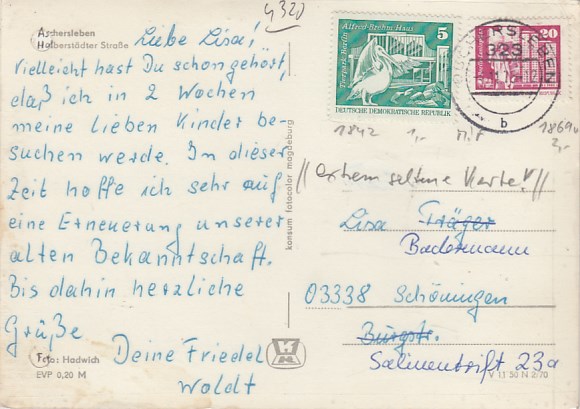 4320
Aschersleben
Halberstädter Straße
Liebe Lisa!
Vielleicht hast Du schon gehört,
daß ich in 2 Wochen
meine lieben Kinder be-
suchen werde. In dieser
Zeit hoffe ich sehr auf
eine Erneuerung unserer
alten Bekanntschaft.
Bis dahin herzliche
Grüße
Deine Friedel
Woldt
Foto: Hadwich
EVP 0,20 M
konsum fotocolor magdeburg
Alfred-Brehm-Haus
Tierpark Berlin
5
DEUTSCHE DEMOKRATISCHE REPUBLIK
20
b
1842 1,- MiF 1869
2,-
//extrem seltene Karte!//
Lisa Träger
Badermann
03338 Schöningen
Burgstr.
Salinentrift 23a
V 11 50 N 2/70